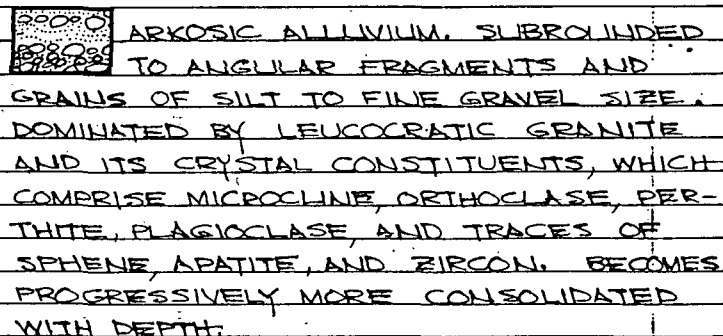 ARKOSIC ALLUVIUM. SUBROUNDED
TO ANGULAR FRAGMENTS AND
GRAINS OF SILT TO FINE GRAVEL SIZE.
DOMINATED BY LEUCOCRATIC GRANITE
AND ITS CRYSTAL CONSTITUENTS, WHICH
COMPRISE MICROCLINE, ORTHOCLASE, PER-
THITE, PLAGIOCLASE, AND TRACES OF
SPHENE, APATITE, AND ZIRCON. BECOMES
PROGRESSIVELY MORE CONSOLIDATED
WITH DEPTH.